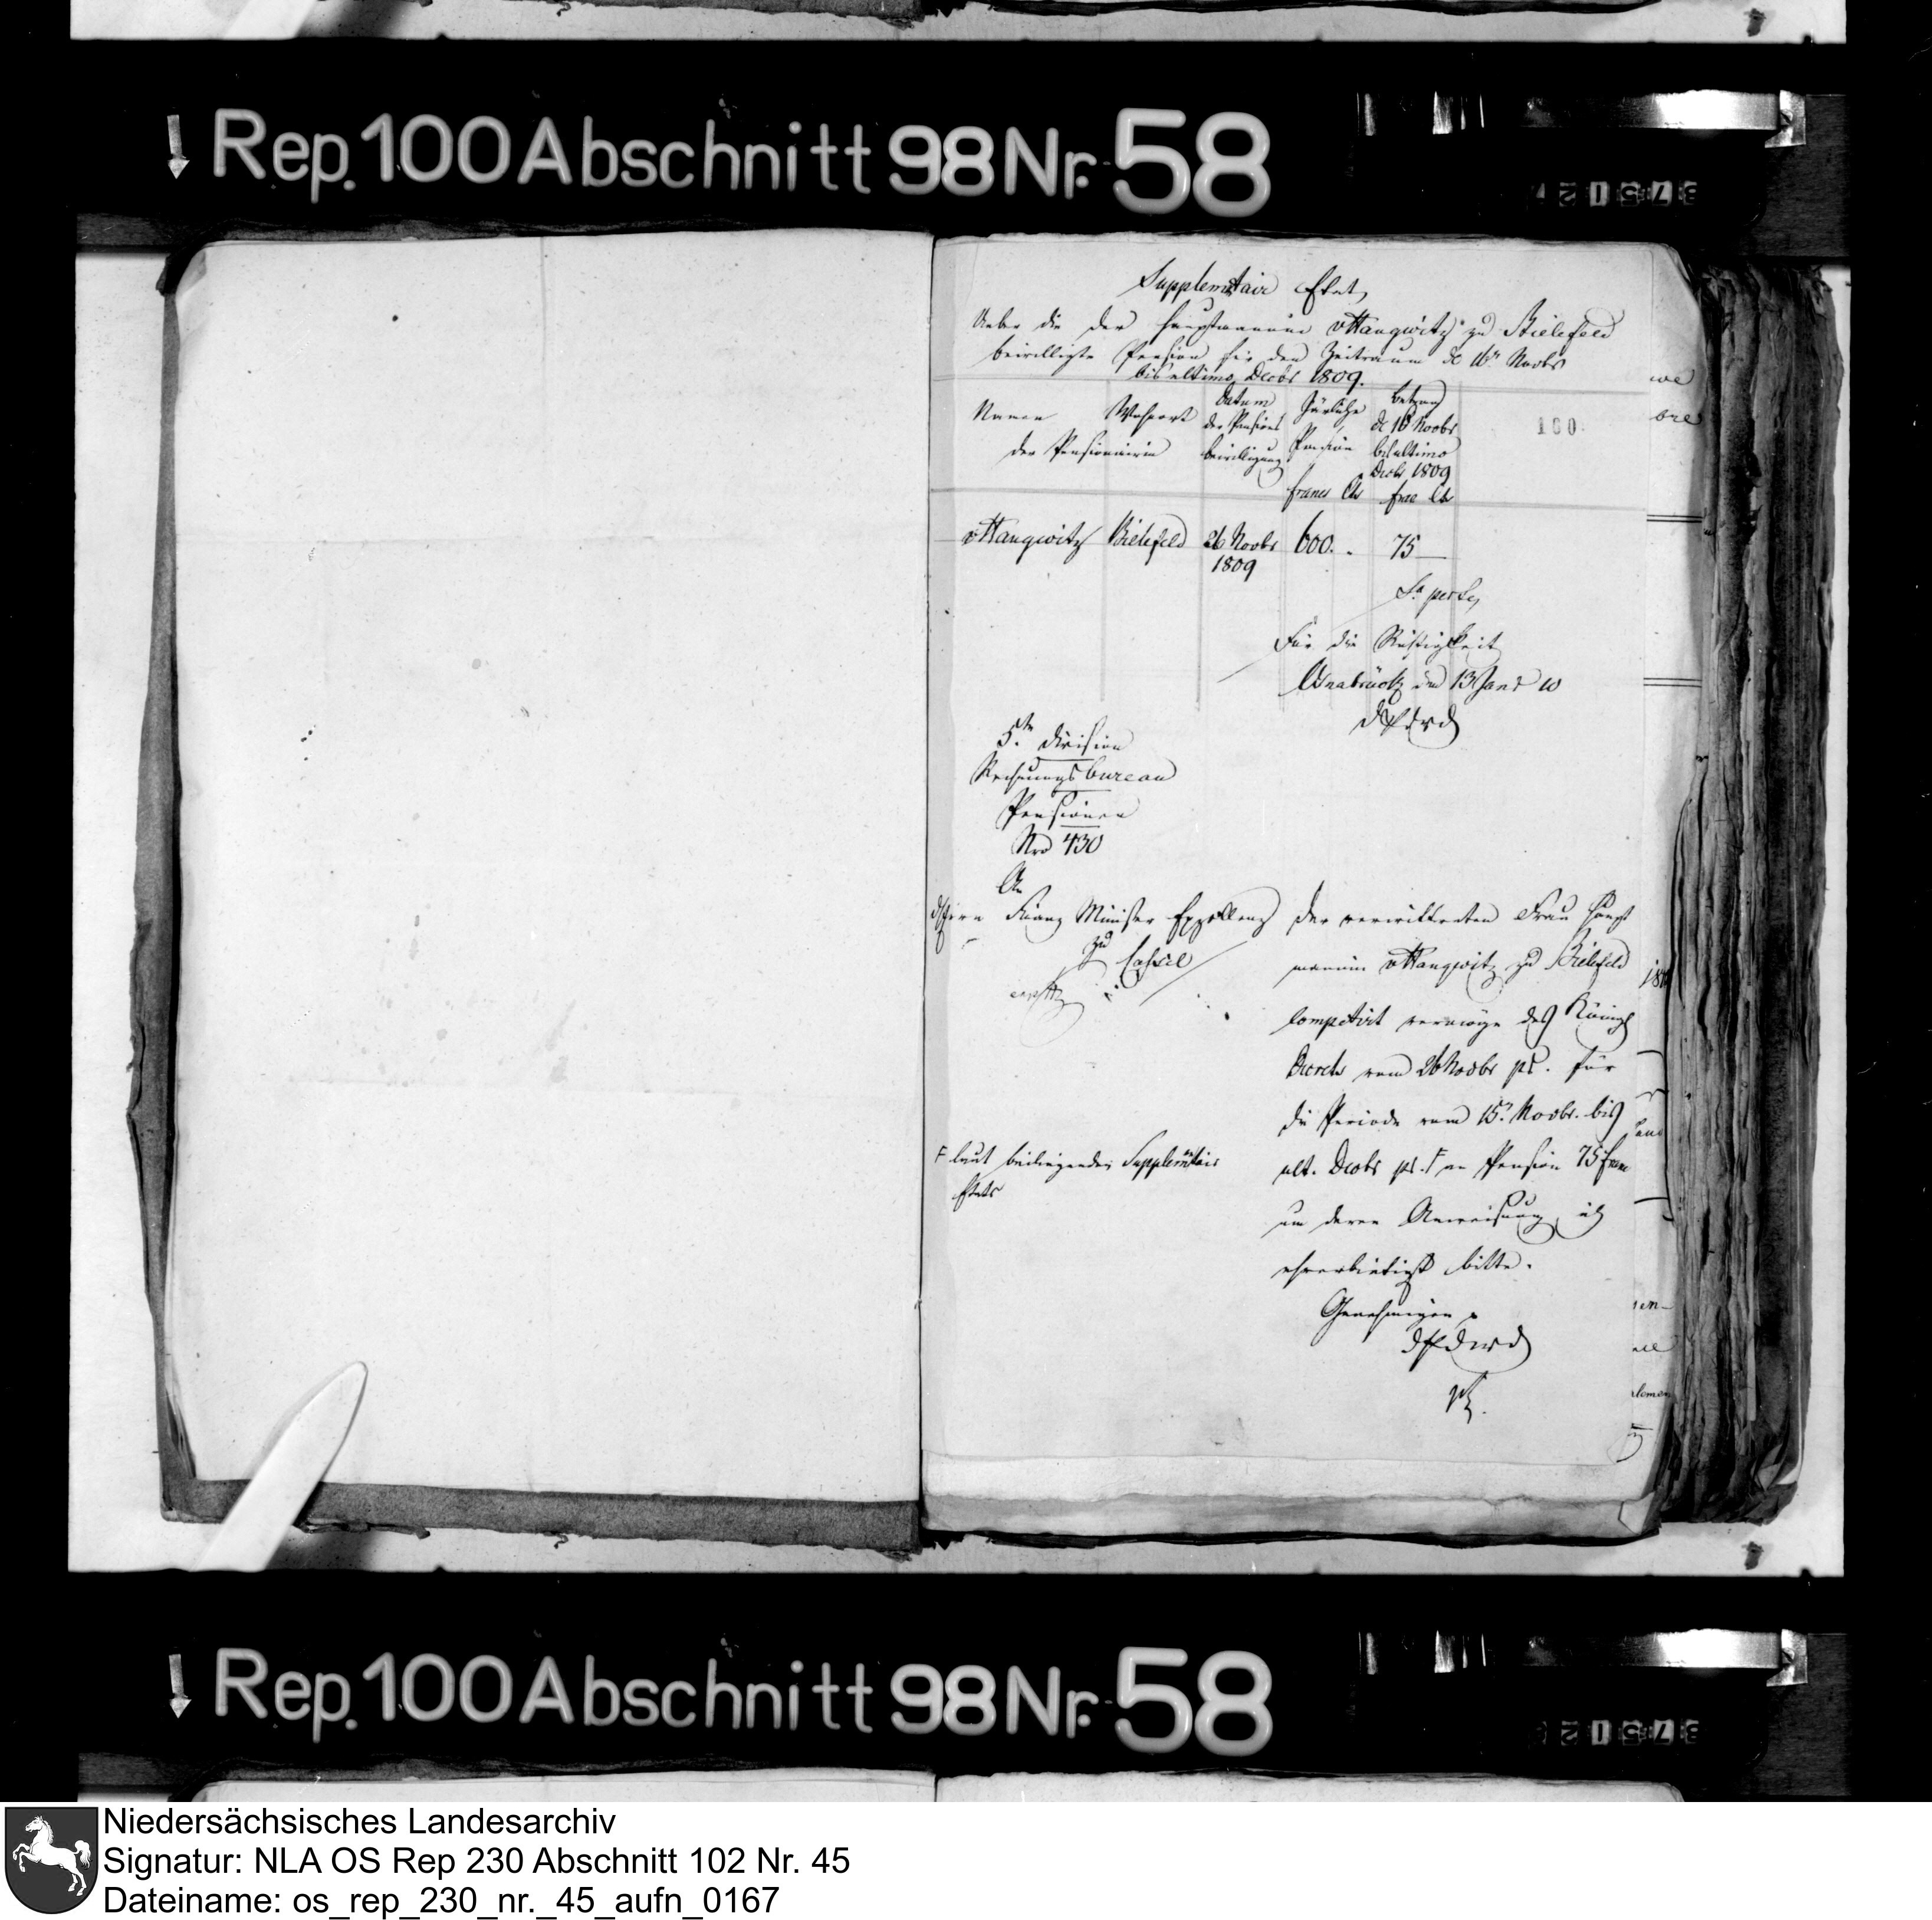 Rep. 100 Abschnitt 98 Nr. 58
Supplementair Etat
Ueber die der Hauptmannin v Haugwitz zu Bielefeld
bewilligte Pension für den Zeitraum de Novbr
bis ultimo Decbr 1809.
Namen Wohnort
der Pensionairin
Datum
der Pensions
bewilligung
Jährliche
Pension
francs Cts
Betrag
de Novbr
bis ultimo
Decbr 1809
frac Cts
100
v Haugwitz Bielefeld 26 Novbr 600. - 75 —
1809
Sa per se
Für die Richtigkeit
Osnabrück den 13 Janr 10
5te Division
Rechnungsbureau
Pensionen
Nro 430
An
Finanz Minister Excellenz
zu Cassel
der verwittweten Frau Haupt
mannin v Haugwitz zu Bielefeld
competirt vermöge des Königl
Decrets vom 26 Novbr pr. für
die Periode vom 15n Novbr. bis
ult. Decbr pr. F an Pension 75 franc
um deren Anweisung ich
ehrerbietigst bitte.
Genehmigen
F laut beiliegenden Supplementair
Etats
Rep. 100 Abschnitt 98 Nr. 58
Niedersächsisches Landesarchiv
Signatur: NLA OS Rep 230 Abschnitt 102 Nr. 45
Dateiname: os_rep_230_nr._45_aufn_0167